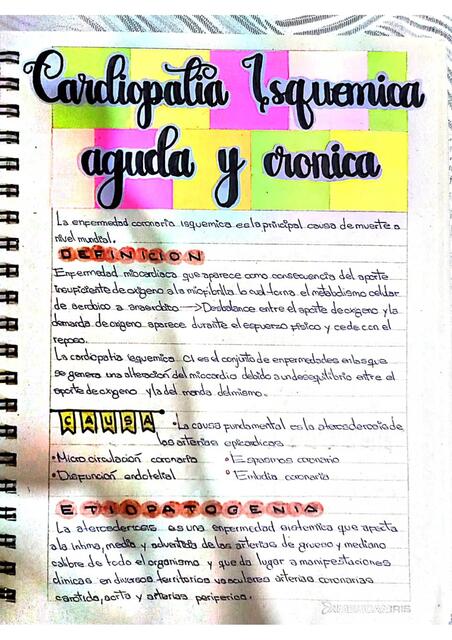 Cardiopatia Isquemica
aguda y cronica
La enfermedad coronaria isquemica es la principal causa de muerte a
nivel mundial.
DEFINICION
Enfermedad miocardica que aparece como consecuencia del aporte
insuficiente de oxigeno a la miofibrilla lo cual torna el metabolismo celular
de aerobico a anaerobico → Desbalance entre el aporte de oxigeno y la
demanda de oxigeno aparece durante el esfuerzo fisico y cede con el
reposo.
La cardiopatia isquemica CI es el conjunto de enfermedades en las que
se genera una alteracion del miocardio debido a un desequilibrio entre el
aporte de oxigeno y la demanda del mismo.
CAUSA • La causa fundamental es la aterosclerosis de
las arterias epicardicas
• Micro circulación coronaria • Espasmos coronario
• Disfunción endotelial • Embolia coronaria
ETIOPATOGENIA
La aterosclerosis es una enfermedad sistemica que afecta
a la intima, media y adventicia de las arterias de grueso y mediano
calibre de todo el organismo y que da lugar a manifestaciones
clinicas en diversos territorios vasculares arterias coronarias
carotida, aorta y arterias periferica.